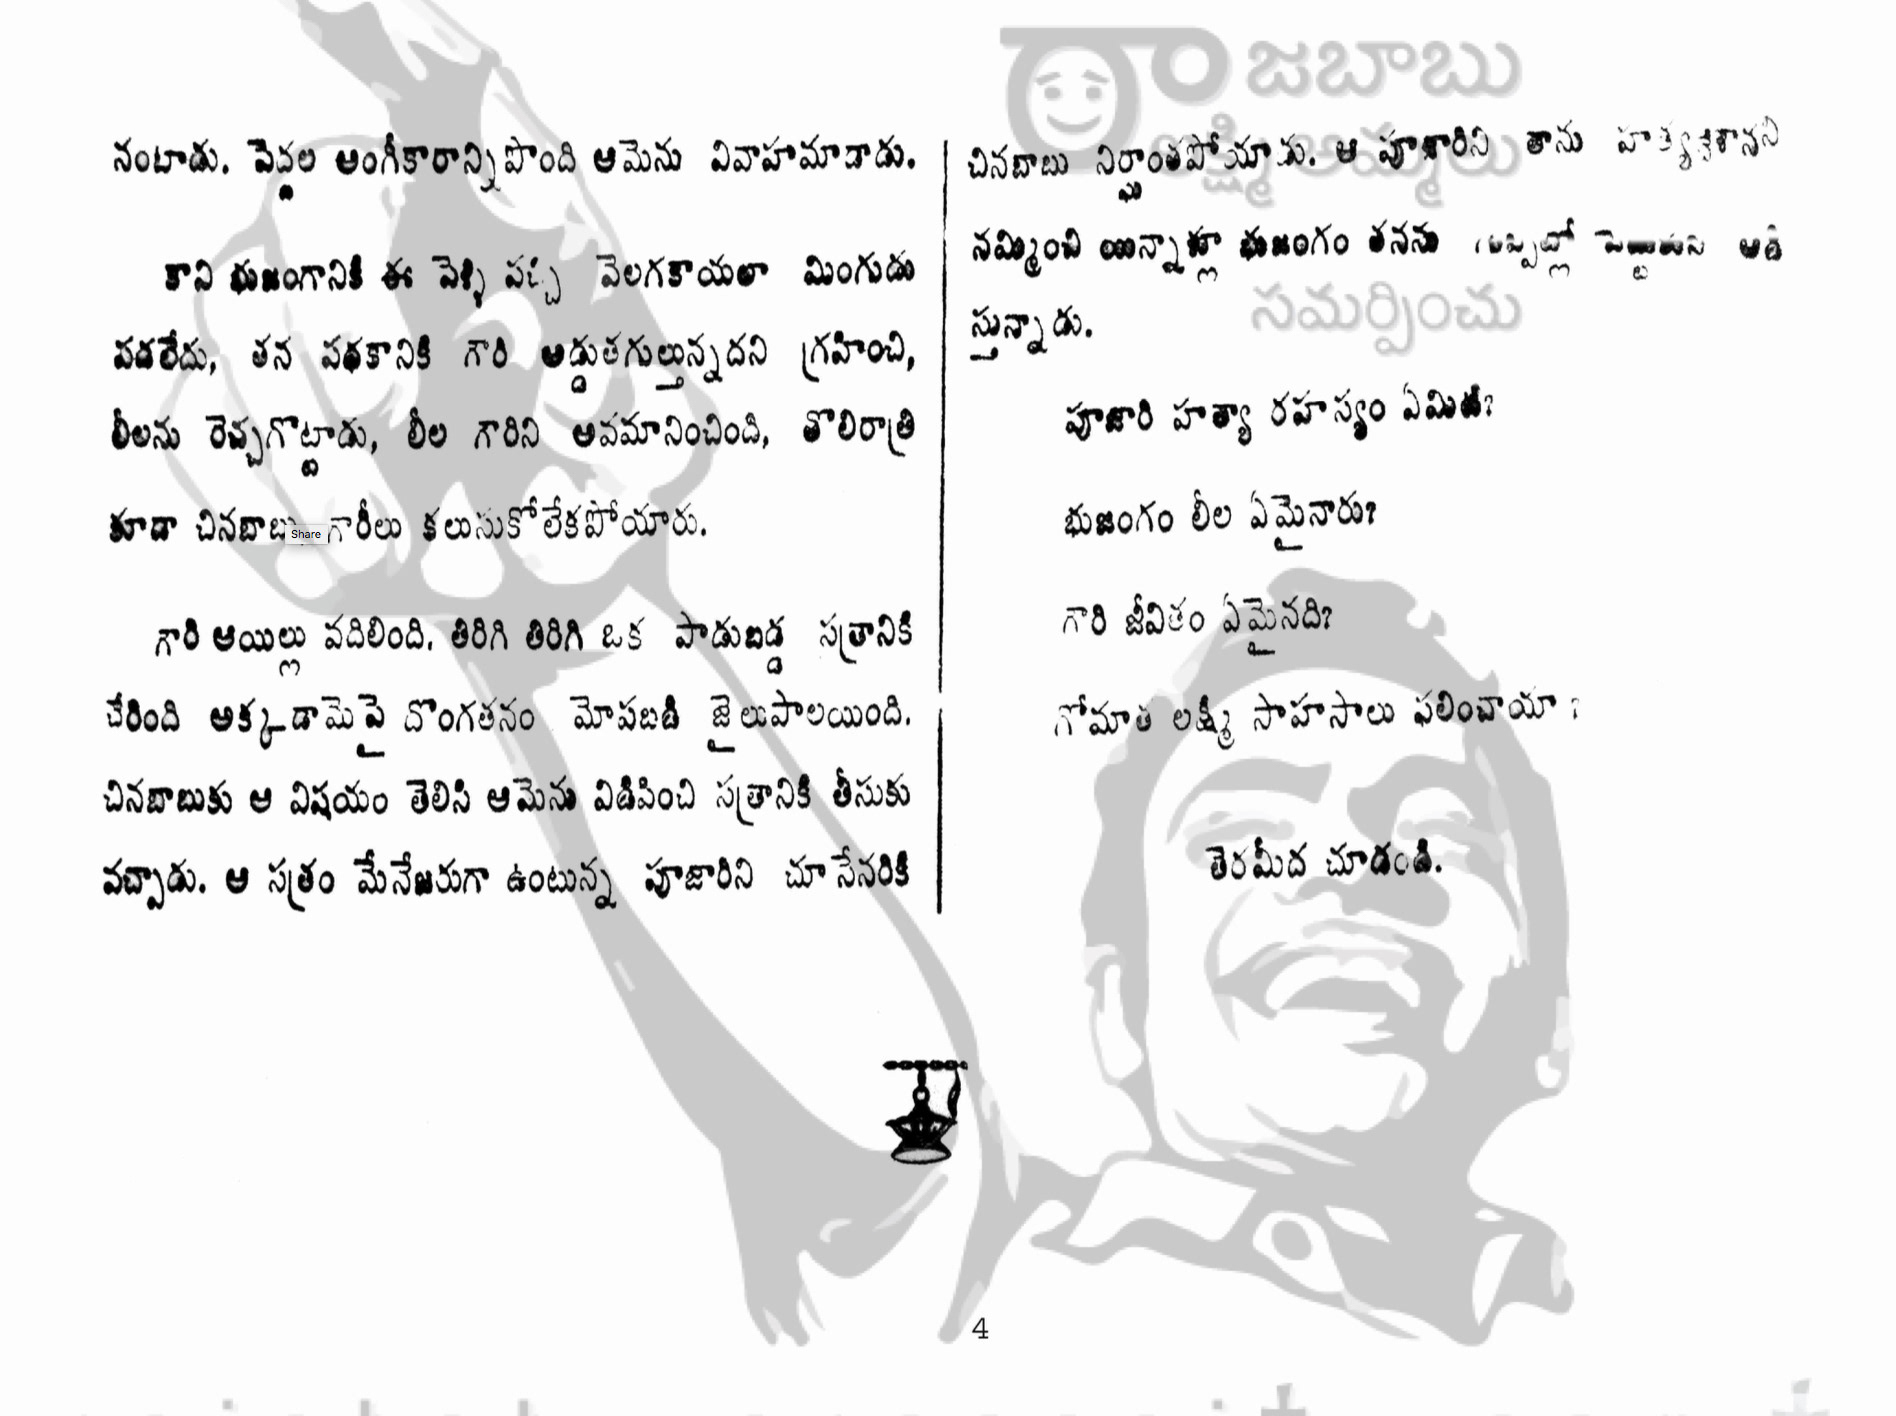 నంటాడు. పెద్దల అంగీకారాన్ని పొంది ఆమెను వివాహమాడాడు.
కాని భుజంగానికి ఈ పెళ్ళి పచ్చి వెలగకాయలా మింగుడు
పడలేదు, తన పథకానికి గౌరి అడ్డుతగుల్తున్నదని గ్రహించి,
లీలను రెచ్చగొట్టాడు, లీల గౌరిని అవమానించింది, తొలిరాత్రి
కూడా చినబాబు గౌరీలు కలుసుకోలేకపోయారు.
గౌరి ఆయిల్లు వదిలింది. తిరిగి తిరిగి ఒక పాడుబడ్డ సత్రానికి
చేరింది అక్కడామెపై దొంగతనం మోపబడి జైలుపాలయింది.
చినబాబుకు ఆ విషయం తెలిసి ఆమెను విడిపించి సత్రానికి తీసుకు
వచ్చాడు. ఆ సత్రం మేనేజరుగా ఉంటున్న పూజారిని చూసేసరికి
రాజబాబు
లక్ష్మి అమ్మలు
సమర్పించు
చినబాబు నిర్ఘాంతపోయాడు. ఆ పూజారిని తాను హత్యచేశానని
నమ్మించి యిన్నాళ్లూ భుజంగం తనను గుప్పెట్లో పెట్టుకుని ఆడి
స్తున్నాడు.
పూజారి హత్యా రహస్యం ఏమిటి?
భుజంగం లీల ఏమైనారు?
గౌరి జీవితం ఏమైనది?
గోమాత లక్ష్మి సాహసాలు ఫలించాయా ?
తెరమీద చూడండి.
Share
4